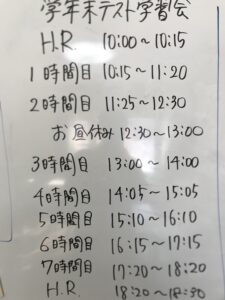 学年末テスト学習会
H.R. 10:00～10:15
1時間目 10:15～11:20
2時間目 11:25～12:30
お昼休み 12:30～13:00
3時間目 13:00～14:00
4時間目 14:05～15:05
5時間目 15:10～16:10
6時間目 16:15～17:15
7時間目 17:20～18:20
H.R. 18:20～18:30